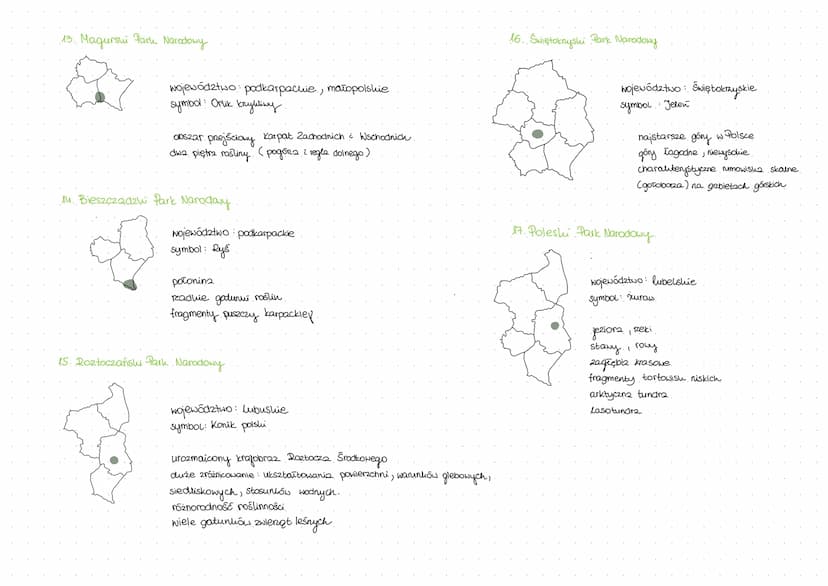 13. Magurski Park Narodowy
województwo : podkarpackie , małopolskie
symbol : Orlik krzykliwy
obszar przejściowy Karpat Zachodnich i Wschodnich
dwa piętra rośliny ( pogórza i regla dolnego )
14. Bieszczadzki Park Narodowy
województwo : podkarpackie
symbol : Ryś
połonina
rzadkie gatunki roślin
fragmenty puszczy karpackiej
15. Roztoczański Park Narodowy
województwo : Lubuskie
symbol : Konik polski
urozmaicony krajobraz Roztocza Środkowego
duże zróżnicowanie : ukształtowania powierzchni , warunków glebowych ,
siedliskowych , stosunków wodnych.
różnorodność roślinności
wiele gatunków zwierząt leśnych
16. Świętokrzyski Park Narodowy
województwo : Świętokrzyskie
symbol : Jeleń
najstarsze góry w Polsce
góry łagodne , niewysokie
charakterystyczne rumowiska skalne
(gołoborza) na grzbietach górskich
17. Poleski Park Narodowy
województwo : lubelskie
symbol : żuraw
jeziora , rzeki
stawy , rowy
zagłębia krasowe
fragmenty torfowisk niskich
arktyczna tundra
lasotundra